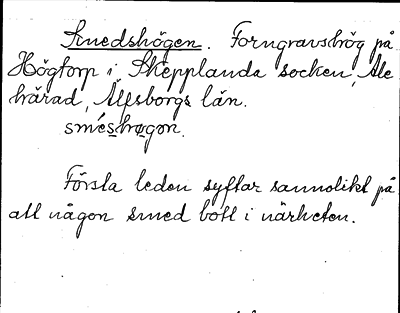 Smedshögen. Forngravshög på
Högtorp i Skepplanda socken, Ale
härad, Älfsborgs län.
sméshøgon.
Första leden syftar sannolikt på
att någon smed bott i närheten.